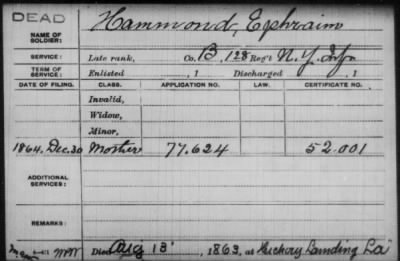 DEAD
NAME OF SOLDIER: Hammond, Ephraim
SERVICE: Late rank, Co. B, 128 Reg't N.Y. Inf.
TERM OF SERVICE: Enlisted , 1 Discharged , 1
DATE OF FILING. CLASS. APPLICATION NO. LAW. CERTIFICATE NO.
Invalid,
Widow,
Minor,
1864. Dec. 30 Mother 77.624 52.001
ADDITIONAL SERVICES:
REMARKS:
Died Aug 13 , 1863, at Hickory Landing La